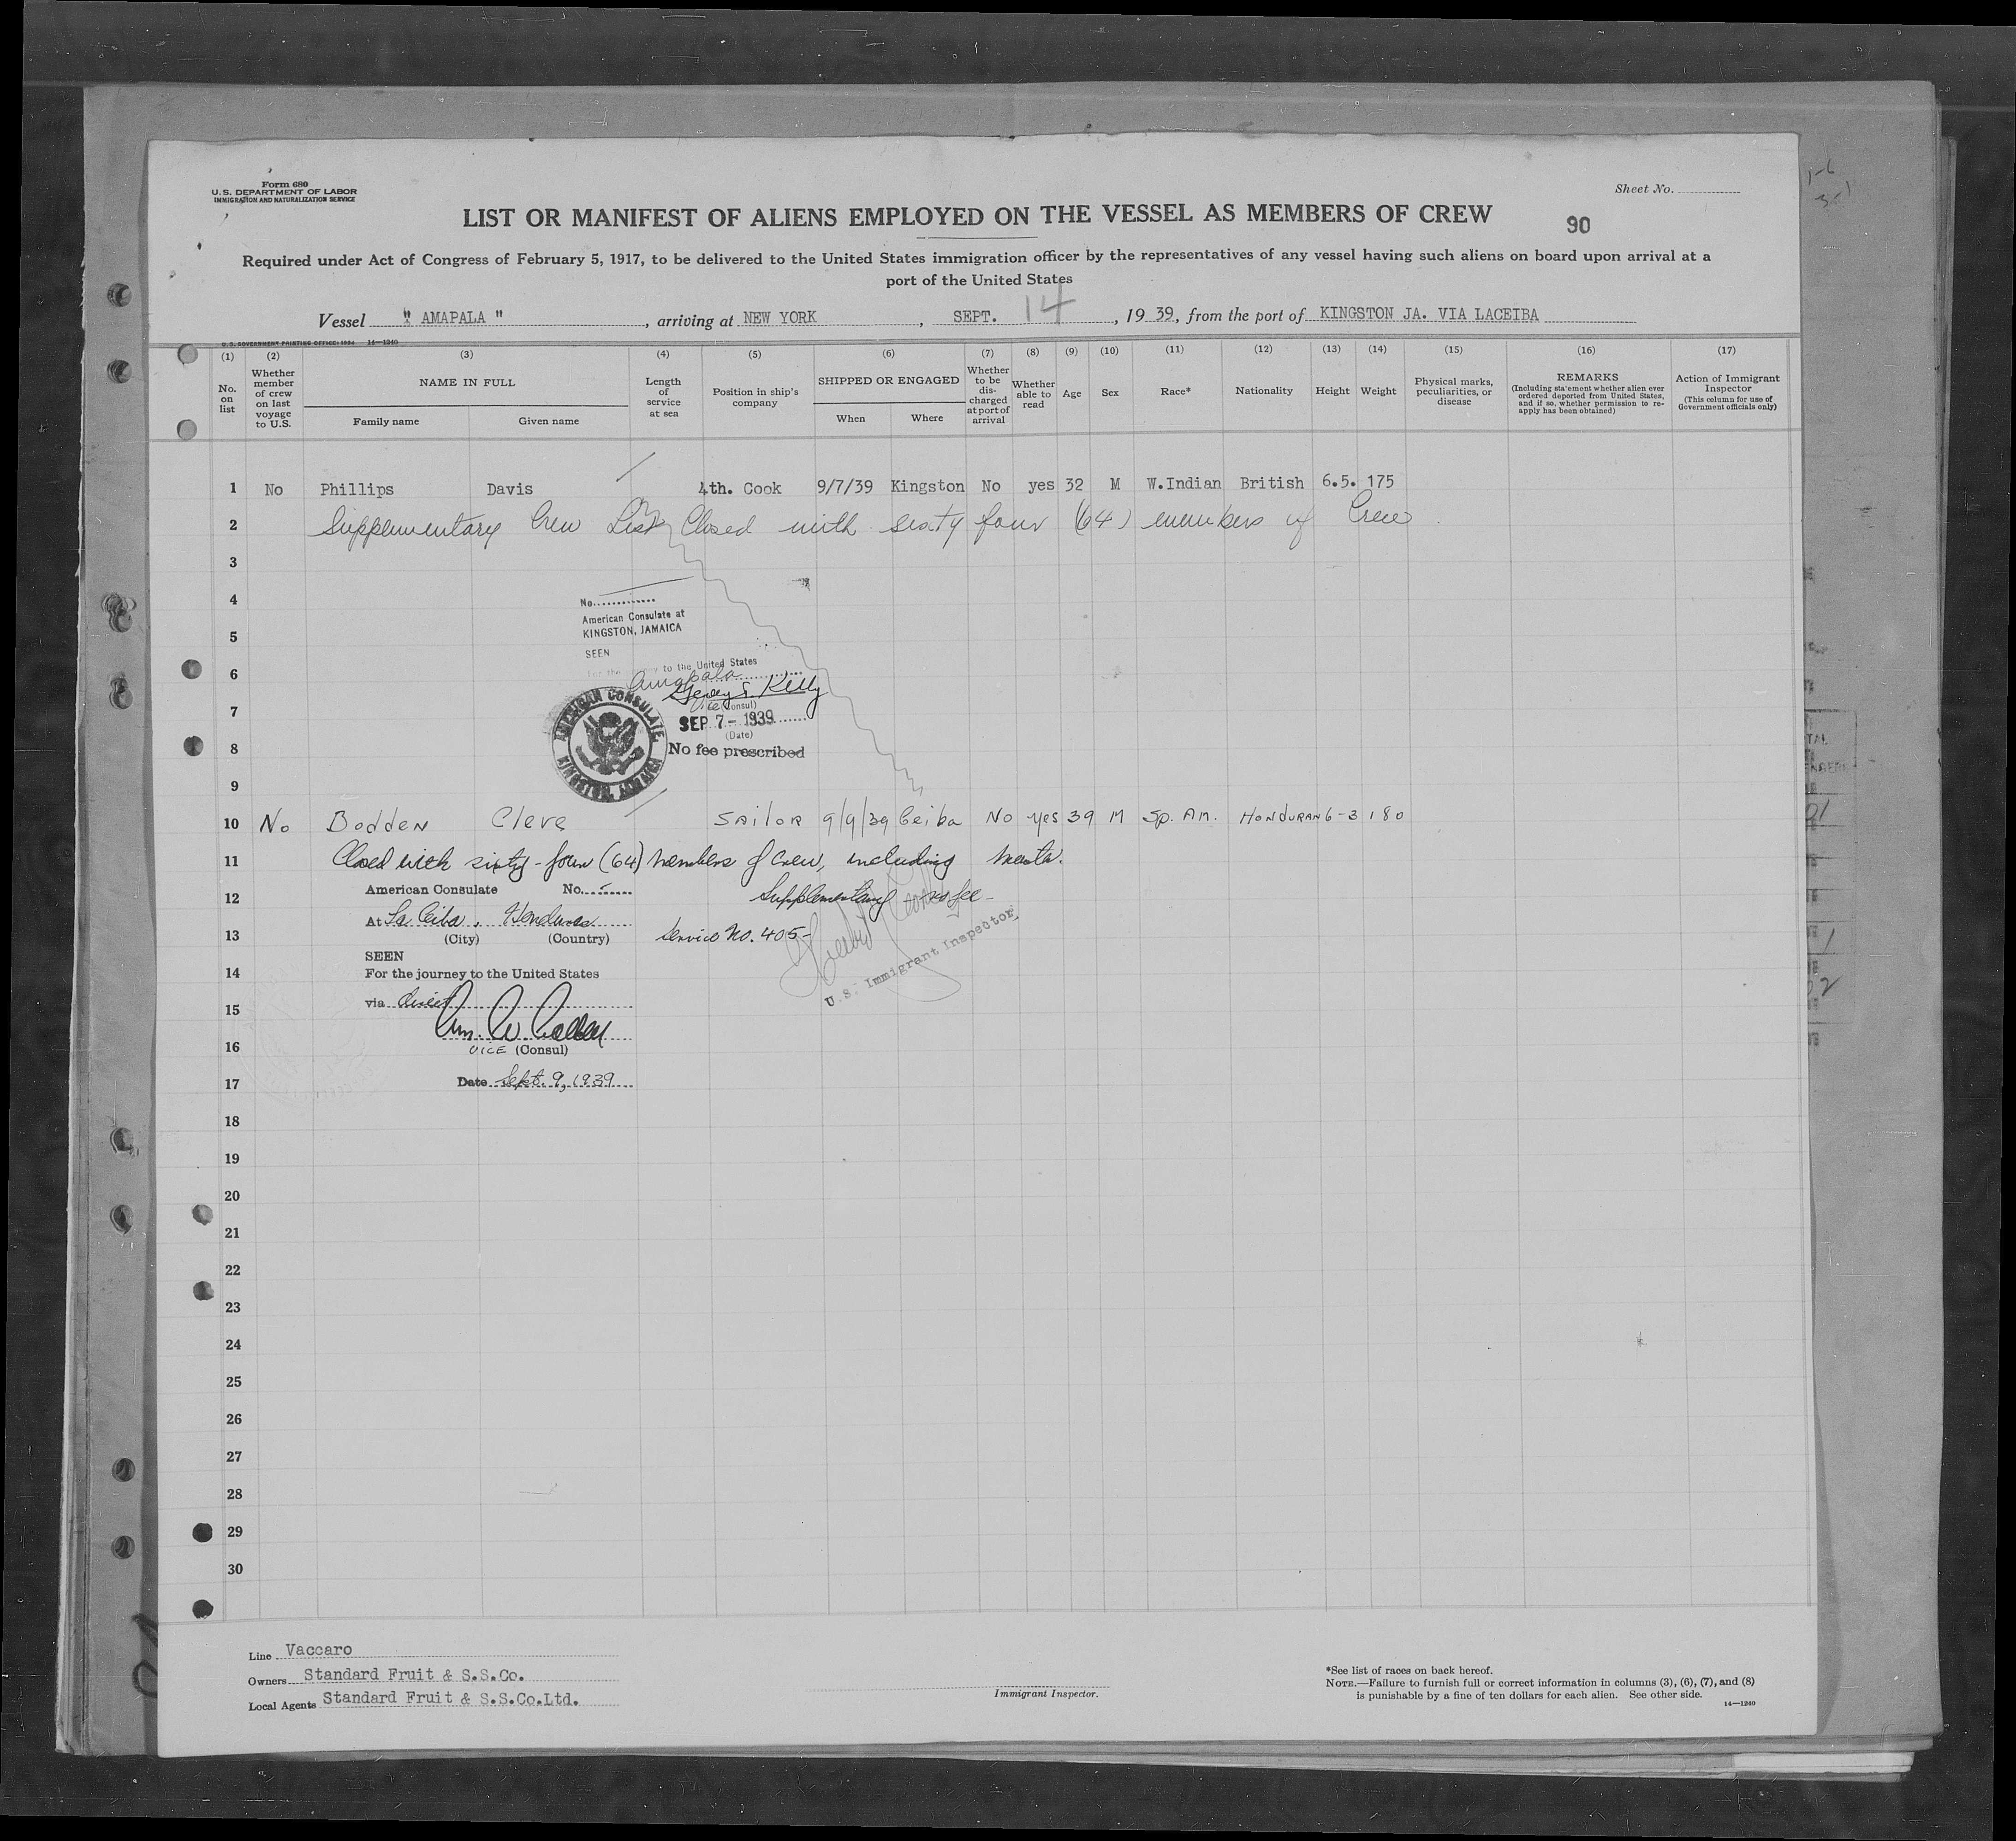 Form 680
U. S. DEPARTMENT OF LABOR
IMMIGRATION AND NATURALIZATION SERVICE
Sheet No.
LIST OR MANIFEST OF ALIENS EMPLOYED ON THE VESSEL AS MEMBERS OF CREW
90
Required under Act of Congress of February 5, 1917, to be delivered to the United States immigration officer by the representatives of any vessel having such aliens on board upon arrival at a
port of the United States
Vessel " AMAPALA ", arriving at NEW YORK, SEPT. 14, 19 39, from the port of KINGSTON JA. VIA LACEIBA
U. S. GOVERNMENT PRINTING OFFICE: 1934 14—1240
(1) (2) (3) (4) (5) (6) (7) (8) (9) (10) (11) (12) (13) (14) (15) (16) (17)
No. on list
Whether member of crew on last voyage to U.S.
NAME IN FULL
Family name
Given name
Length of service at sea
Position in ship's company
SHIPPED OR ENGAGED
When
Where
Whether to be discharged at port of arrival
Whether able to read
Age
Sex
Race*
Nationality
Height
Weight
Physical marks, peculiarities, or disease
REMARKS
(Including statement whether alien ever ordered deported from United States, and if so, whether permission to reapply has been obtained)
Action of Immigrant Inspector
(This column for use of Government officials only)
1 No Phillips Davis 4th. Cook 9/7/39 Kingston No yes 32 M W.Indian British 6.5. 175
2 Supplementary Crew List Closed with sixty four (64) members of Crew
3
4
No.
American Consulate at
5
KINGSTON, JAMAICA
SEEN
6
to the United States
Amapala
Kelly
7
Vice (Consul)
SEP 7 - 1939
(Date)
8
No fee prescribed
AMERICAN CONSULATE, KINGSTON, JAMAICA
9
10 No Bodden Cleve Sailor 9/9/39 Ceiba No yes 39 M Sp. Am. Honduran 6-3 180
11 Closed with sixty-four (64) members of Crew, including master.
American Consulate No.
12 Supplementary - no fee -
At La Ceiba, Honduras
13 Service No. 405-
(City) (Country)
SEEN
14
For the journey to the United States
U. S. Immigrant Inspector
via direct
15
16
VICE (Consul)
17
Date Sept. 9, 1939
18
19
20
21
22
23
24
25
26
27
28
29
30
Line Vaccaro
Owners Standard Fruit & S.S.Co.
Local Agents Standard Fruit & S.S.Co.Ltd.
Immigrant Inspector.
*See list of races on back hereof.
NOTE.—Failure to furnish full or correct information in columns (3), (6), (7), and (8)
is punishable by a fine of ten dollars for each alien. See other side.
14—1240